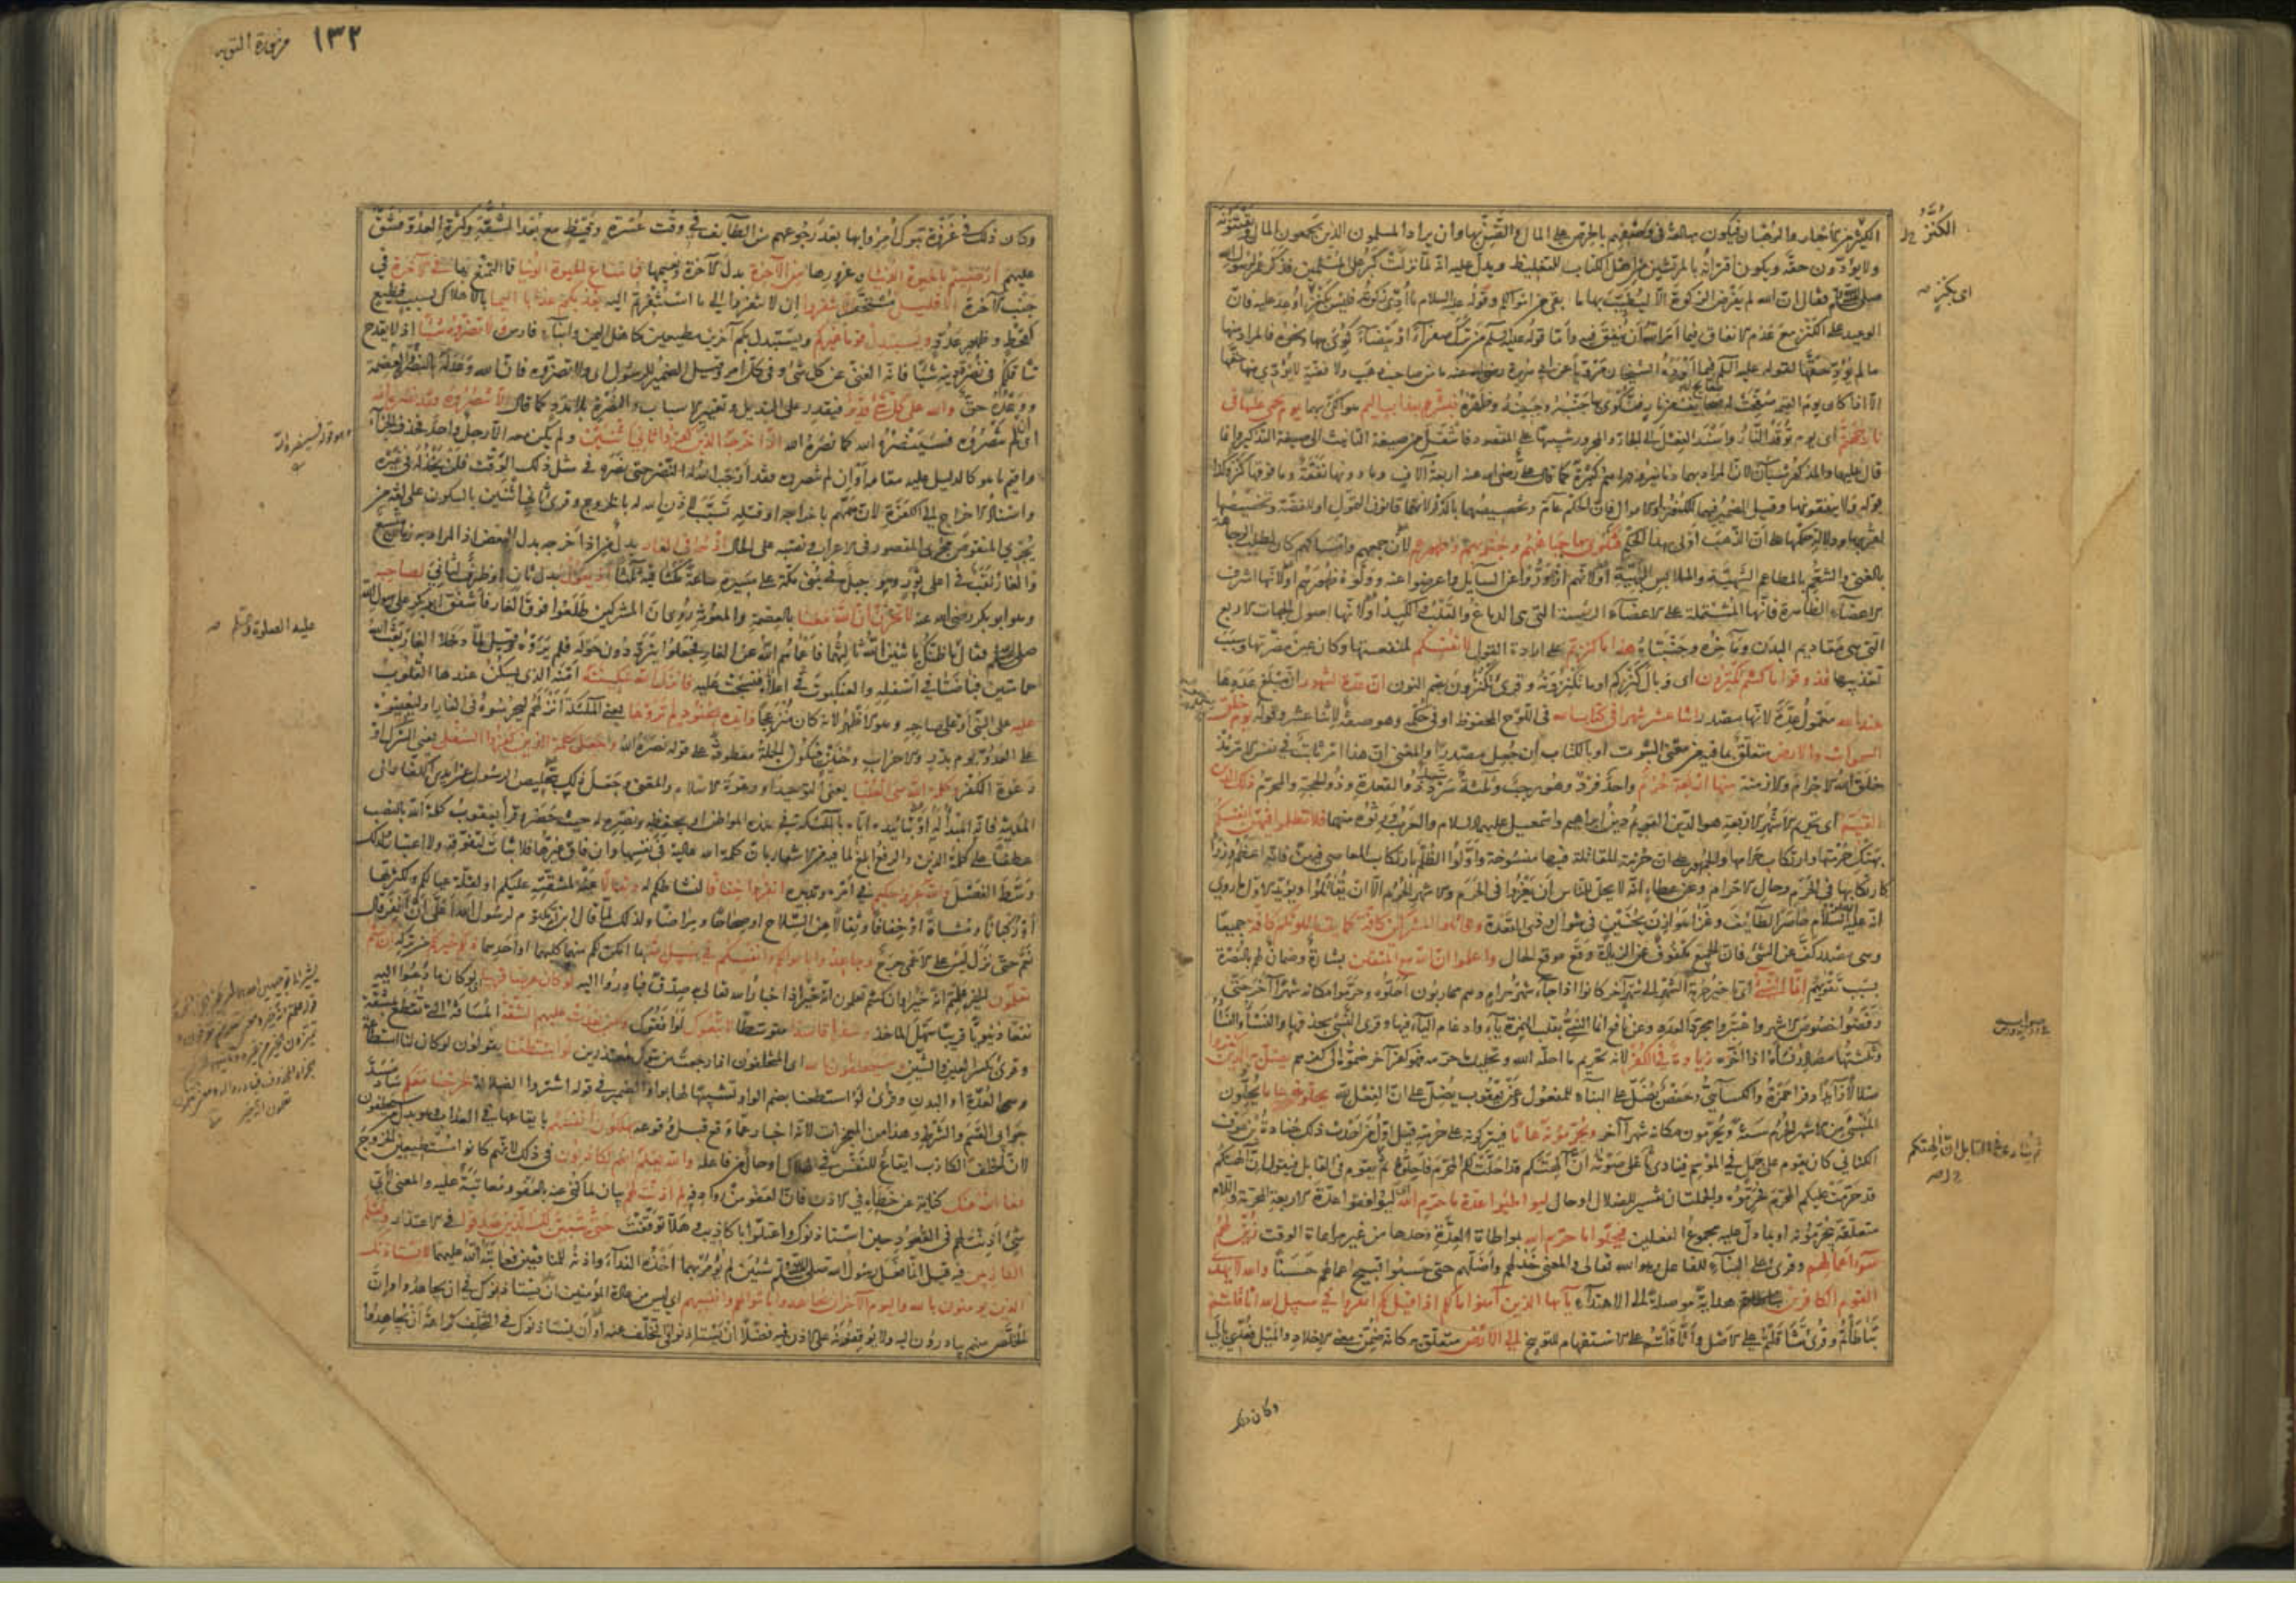 الكثير من الأحبار والرهبان فيكون مبالغة في وصفهم بالحرص على المال والضن بها وأن يراد المسلمون الذين يجمعون المال ويقتنونه
ولا يؤدون حقه ويكون اقترانه بالمرتشين من اهل الكتاب للتغليظ ويدل عليه انه لما نزلت كبر على المسلمين فذكر عمر لرسول الله
صلى الله عليه وسلم فقال ان الله لم يفرض الزكوة الا ليطيب بها ما بقي من اموالكم وقوله عليه السلام ما أدي زكوته فليس بكنز اي اوعد عليه فان
الوعيد على الكنز مع عدم الانفاق فيما أمر الله أن ينفق فيه وأما قوله عليه السلم من ترك صفراء أو بيضاء كوي بها ونحوه فالمراد منها
ما لم يؤد حقها لقوله عليه السلم فيما أورده الشيخان مرويا عن ابي هريرة رضي الله عنه ما من صاحب ذهب ولا فضة لا يؤدي منها حقها
الا اذا كان يوم القيمة صفحت له صفائح من نار فتكوى بها جنبه وجبينه وظهره فبشرهم بعذاب اليم هو الكي بهما يوم يحمى عليها في
نار جهنم اي يوم توقد النار
قال عليها والمذكور شيآن لأن المراد بهما دنانير ودراهم كثيرة كما قال علي رضي الله عنه اربعة آلاف وما دونها نفقة وما فوقها كنز وكذا
قوله ولا ينفقونها وقيل الضمير فيهما للكنوز او الاموال فان الحكم عام وتخصيصهما بالذكر لانهما قانون التمول او للفضة وتخصيصها
لقربها ودلالة حكمها على أن الذهب أولى بهذا الحكم فتكوى بها جباههم وجنوبهم وظهورهم لأن جمعهم وامساكهم كان لطلب الوجاهة
بالغنى والتنعم بالمطاعم الشهية والملابس البهية أو لأنهم ازوروا عن السايل واعرضوا عنه وولوه ظهورهم أو لأنها اشرف
الاعضاء الظاهرة فانها المشتملة على الاعضاء الرئيسة التي هي الدماغ والقلب والكبد أو لأنها اصول الجهات الاربع
التي هي مقاديم البدن ومآخره وجنبتاه هذا ما كنزتم على ارادة القول لأنفسكم لمنفعتها وكان عين مضرتها وسبب
تعذيبها فذوقوا ما كنتم تكنزون اي وبال كنزكم او ما تكنزونه وقرئ تكنزون بضم النون ان عدة الشهور اي مبلغ عددها
عند الله معمول عدة لأنها مصدر اثنا عشر شهرا في كتاب الله في اللوح المحفوظ او في حكمه وهو صفة لاثنا عشر وقوله يوم خلق
السموات والارض متعلق بما فيه من معنى الثبوت او بالكتاب ان جعل مصدرا والمعنى ان هذا امر ثابت في نفس الامر مذ
خلق الله الاجرام والازمنة منها اربعة حرم واحد فرد وهو رجب وثلثة سرد ذو القعدة وذو الحجة والمحرم ذلك الدين
القيم اي تحريم الاشهر الاربعة هو الدين القويم دين ابراهيم واسمعيل عليهما السلام والعرب ورثوه منهما فلا تظلموا فيهن انفسكم
بهتك حرمتها وارتكاب حرامها والجمهور على ان حرمة المقاتلة فيها منسوخة واولوا الظلم بارتكاب المعاصي فيهن فانه اعظم وزرا
كارتكابها في الحرم وحال الاحرام وعن عطاء انه لا يحل للناس أن يغزوا في الحرم والاشهر الحرم الا ان يقاتلوا ويؤيد الاول ما روي
انه عليه السلام حاصر الطائف وغزا هوازن بحنين في شوال وذي القعدة وقاتلوا المشركين كافة كما يقاتلونكم كافة جميعا
وهي مصدر كف عن الشئ فان الجميع مكفوف عن الزيادة وقع موقع الحال واعلموا ان الله مع المتقين بشارة وضمان لهم بالنصرة
بسبب تقويهم انما النسئ اي تأخير حرمة الشهر الى شهر آخر كانوا اذا جاء شهر حرام وهم محاربون احلوه وحرموا مكانه شهرا آخر حتى
رفضوا خصوص الاشهر واعتبروا مجرد العدد وعن نافع انما النسي بقلب الهمزة ياء وادغام الياء فيها وقرئ النسي بحذفها والنسء والنساء
وثلثتها مصادر نسأه اذا اخره زيادة في الكفر لأنه تحريم ما احله الله وتحليل ما حرمه فهو كفر آخر ضموه الى كفرهم يضل به الذين كفروا
ضلالا زائدا وقرأ حمزة والكسائي وحفص يضل على البناء للمفعول وعن يعقوب يضل على ان الفعل لله يحلونه عاما يحلون
المنسئ من الاشهر الحرم سنة ويحرمون مكانه شهرا آخر ويحرمونه عاما فيتركونه على حرمته قيل اول من احدث ذلك جنادة بن عوف
الكناني كان يقوم على جمل في الموسم فينادي ان آلهتكم قد احلت لكم المحرم فاحلوه ثم يقوم في القابل فيقول ان آلهتكم
قد حرمت عليكم المحرم فحرموه والجملتان تفسير للضلال او حال ليواطئوا عدة ما حرم الله اي ليوافقوا عدة الاربعة المحرمة واللام
متعلقة بيحرمونه او بما دل عليه مجموع الفعلين فيحلوا ما حرم الله بمواطاة العدة وحدها من غير مراعاة الوقت زين لهم
سوء اعمالهم وقرئ على البناء للفاعل وهو الله تعالى والمعنى خذلهم واضلهم حتى حسبوا قبيح اعمالهم حسنا والله لا يهدي
القوم الكافرين هداية موصلة الى الاهتداء يا أيها الذين آمنوا ما لكم اذا قيل لكم انفروا في سبيل الله اثاقلتم
تباطأتم وقرئ تثاقلتم على الاصل وأثاقلتم على الاستفهام للتوبيخ الى الارض متعلق به كانه ضمن معنى الاخلاد والميل فعدي بالى
الكنز
اي بكنز
ثم ينادي في القابل ان آلهتكم
وكان ذلك
١٣٢
من سورة التوبه
وكان ذلك في غزوة تبوك أمروا بها بعد رجوعهم من الطائف في وقت عسرة وقيظ مع بعد المشقة وكثرة العدو فشق
عليهم ارضيتم بالحيوة الدنيا وغرورها من الآخرة بدل الآخرة ونعيمها فما متاع الحيوة الدنيا فما التمتع بها في الآخرة في
جنب الآخرة الا قليل مستحقر الا تنفروا إن لا تنفروا الى ما استنفرتم اليه يعذبكم عذابا اليما بالاهلاك بسبب فظيع
كقحط وظهور عدو ويستبدل قوما غيركم ويستبدل بكم آخرين مطيعين كاهل اليمن وابناء فارس ولا تضروه شيئا اذ لا يقدح
تثاقلكم في نصر دينه شيئا فانه الغني عن كل شئ وفي كل امر وقيل الضمير للرسول اي ولا تضروه فان الله وعد له بالنصر والعصمة
ووعده حق والله على كل شئ قدير فيقدر على التبديل وتغيير الاسباب والنصرة بلا مدد كما قال الا تنصروه فقد نصره الله
اي ان لم تنصروه فسينصره الله كما نصره الله اذ اخرجه الذين كفروا ثاني اثنين ولم يكن معه الا رجل واحد فحذف الجزاء
واقيم ما هو كالدليل عليه مقامه أو ان لم تنصروه فقد أوجب الله له النصر حتى نصره في مثل ذلك الوقت فلن يخذله في غيره
واسناد الاخراج الى الكفرة لأن همهم باخراجه او قتله تسبب لاذن الله له بالخروج وقرئ ثاني اثنين بالسكون على لغة من
يجري المنقوص مجرى المقصور في الاعراب ونصبه على الحال اذ هما في الغار بدل من اذ اخرجه بدل البعض اذ المراد به زمان متسع
والغار نقب في اعلى ثور وهو جبل في يمنى مكة على مسيرة ساعة مكثا فيه ثلثا اذ يقول بدل ثان أو ظرف لثاني لصاحبه
وهو ابو بكر رضي الله عنه لا تحزن ان الله معنا بالعصمة والمعونة روي ان المشركين طلعوا فوق الغار فأشفق ابو بكر على رسول الله
صلى الله عليه وسلم فقال ما ظنك باثنين الله ثالثهما فأعماهم الله عن الغار فجعلوا يترددون حوله فلم يروه وقيل لما دخلا الغار بعث الله
حمامتين فباضتا في اسفله والعنكبوت فنسجت عليه فأنزل الله سكينته أمنته التي تسكن عندها القلوب
عليه على النبي أو على صاحبه وهو الاظهر لأنه كان منزعجا وايده بجنود لم تروها يعني الملئكة أنزلهم ليحرسوه في الغار او ليعينوه
على العدو يوم بدر والاحزاب وحنين فتكون الجملة معطوفة على قوله نصره الله وجعل كلمة الذين كفروا السفلى يعني الشرك او
دعوة الكفر وكلمة الله هي العليا يعني التوحيد او دعوة الاسلام والمعنى وجعل ذلك بتخليص الرسول عن ايدي الكفار الى
المدينة فانه المبدأ له أو بتأييده اياه بالملئكة في هذه المواطن او بحفظه ونصره له حيث حضر وقرأ يعقوب كلمة الله بالنصب
عطفا على كلمة الذين والرفع ابلغ لما فيه من الاشعار بان كلمة الله عالية في نفسها وان فاق غيرها فلا ثبات لتفوقه ولا اعتبار ولذلك
وسط الفصل والله عزيز حكيم في أمره وتدبيره انفروا خفافا لنشاطكم له وثقالا عنه لمشقته عليكم او لقلة عيالكم ولكثرتها
أو ركبانا ومشاة أو خفافا وثقالا من السلاح او صحاحا ومراضا ولذلك لما قال ابن ام مكتوم لرسول الله أعلي أن انفر قال
نعم حتى نزل ليس على الاعمى حرج وجاهدوا باموالكم وانفسكم في سبيل الله بما امكن لكم منهما كليهما او احدهما ذلكم خير لكم من تركه ان كنتم
تعلمون الخير علمتم انه خير او ان كنتم تعلمون انه خير اذ اخبار الله تعالى به صدق فبادروا اليه لو كان عرضا قريبا اي لو كان ما دعوا اليه
نفعا دنيويا قريبا سهل المأخذ وسفرا قاصدا متوسطا لاتبعوك لوافقوك ولكن بعدت عليهم الشقة المسافة التي تقطع بمشقة
وقرئ بكسر العين والشين وسيحلفون بالله اي المتخلفون اذا رجعت من تبوك معتذرين لو استطعنا يقولون لو كان لنا استطاعة
العدة او البدن وقرئ لو استطعنا بضم الواو تشبيها لها بواو الضمير في قوله اشتروا الضلالة لخرجنا معكم ساد مسد
جوابي القسم والشرط وهذا من المعجزات لأنه اخبار عما وقع قبل وقوعه يهلكون انفسهم بايقاعها في العذاب وهو بدل من سيحلفون
لأن الحلف الكاذب ايقاع للنفس في الهلاك او حال من فاعله والله يعلم انهم لكاذبون في ذلك لأنهم كانوا مستطيعين الخروج
عفا الله عنك كناية عن خطائه في الاذن فان العفو من روادفه لم اذنت لهم بيان لما كني عنه بالعفو ومعاتبة عليه والمعنى لأي
شئ أذنت لهم في القعود حين استاذنوك واعتلوا باكاذيب وهلا توقفت حتى يتبين لك الذين صدقوا في الاعتذار وتعلم
الكاذبين فيه قيل انما فعل رسول الله صلى الله عليه وسلم شيئين لم يؤمر بهما أخذه الفداء واذنه للمنافقين فعاتبه الله عليهما لا يستاذنك
الذين يؤمنون بالله واليوم الآخر ان يجاهدوا باموالهم وانفسهم اي ليس من عادة المؤمنين ان يستاذنوك في ان يجاهدوا وان
الخلص منهم يبادرون اليه ولا يوقفونه على الاذن فيه فضلا أن يستاذنوك في التخلف عنه أو أن يستاذنوك في التخلف كراهة أن يجاهدوا
عليه الصلوة والسلم